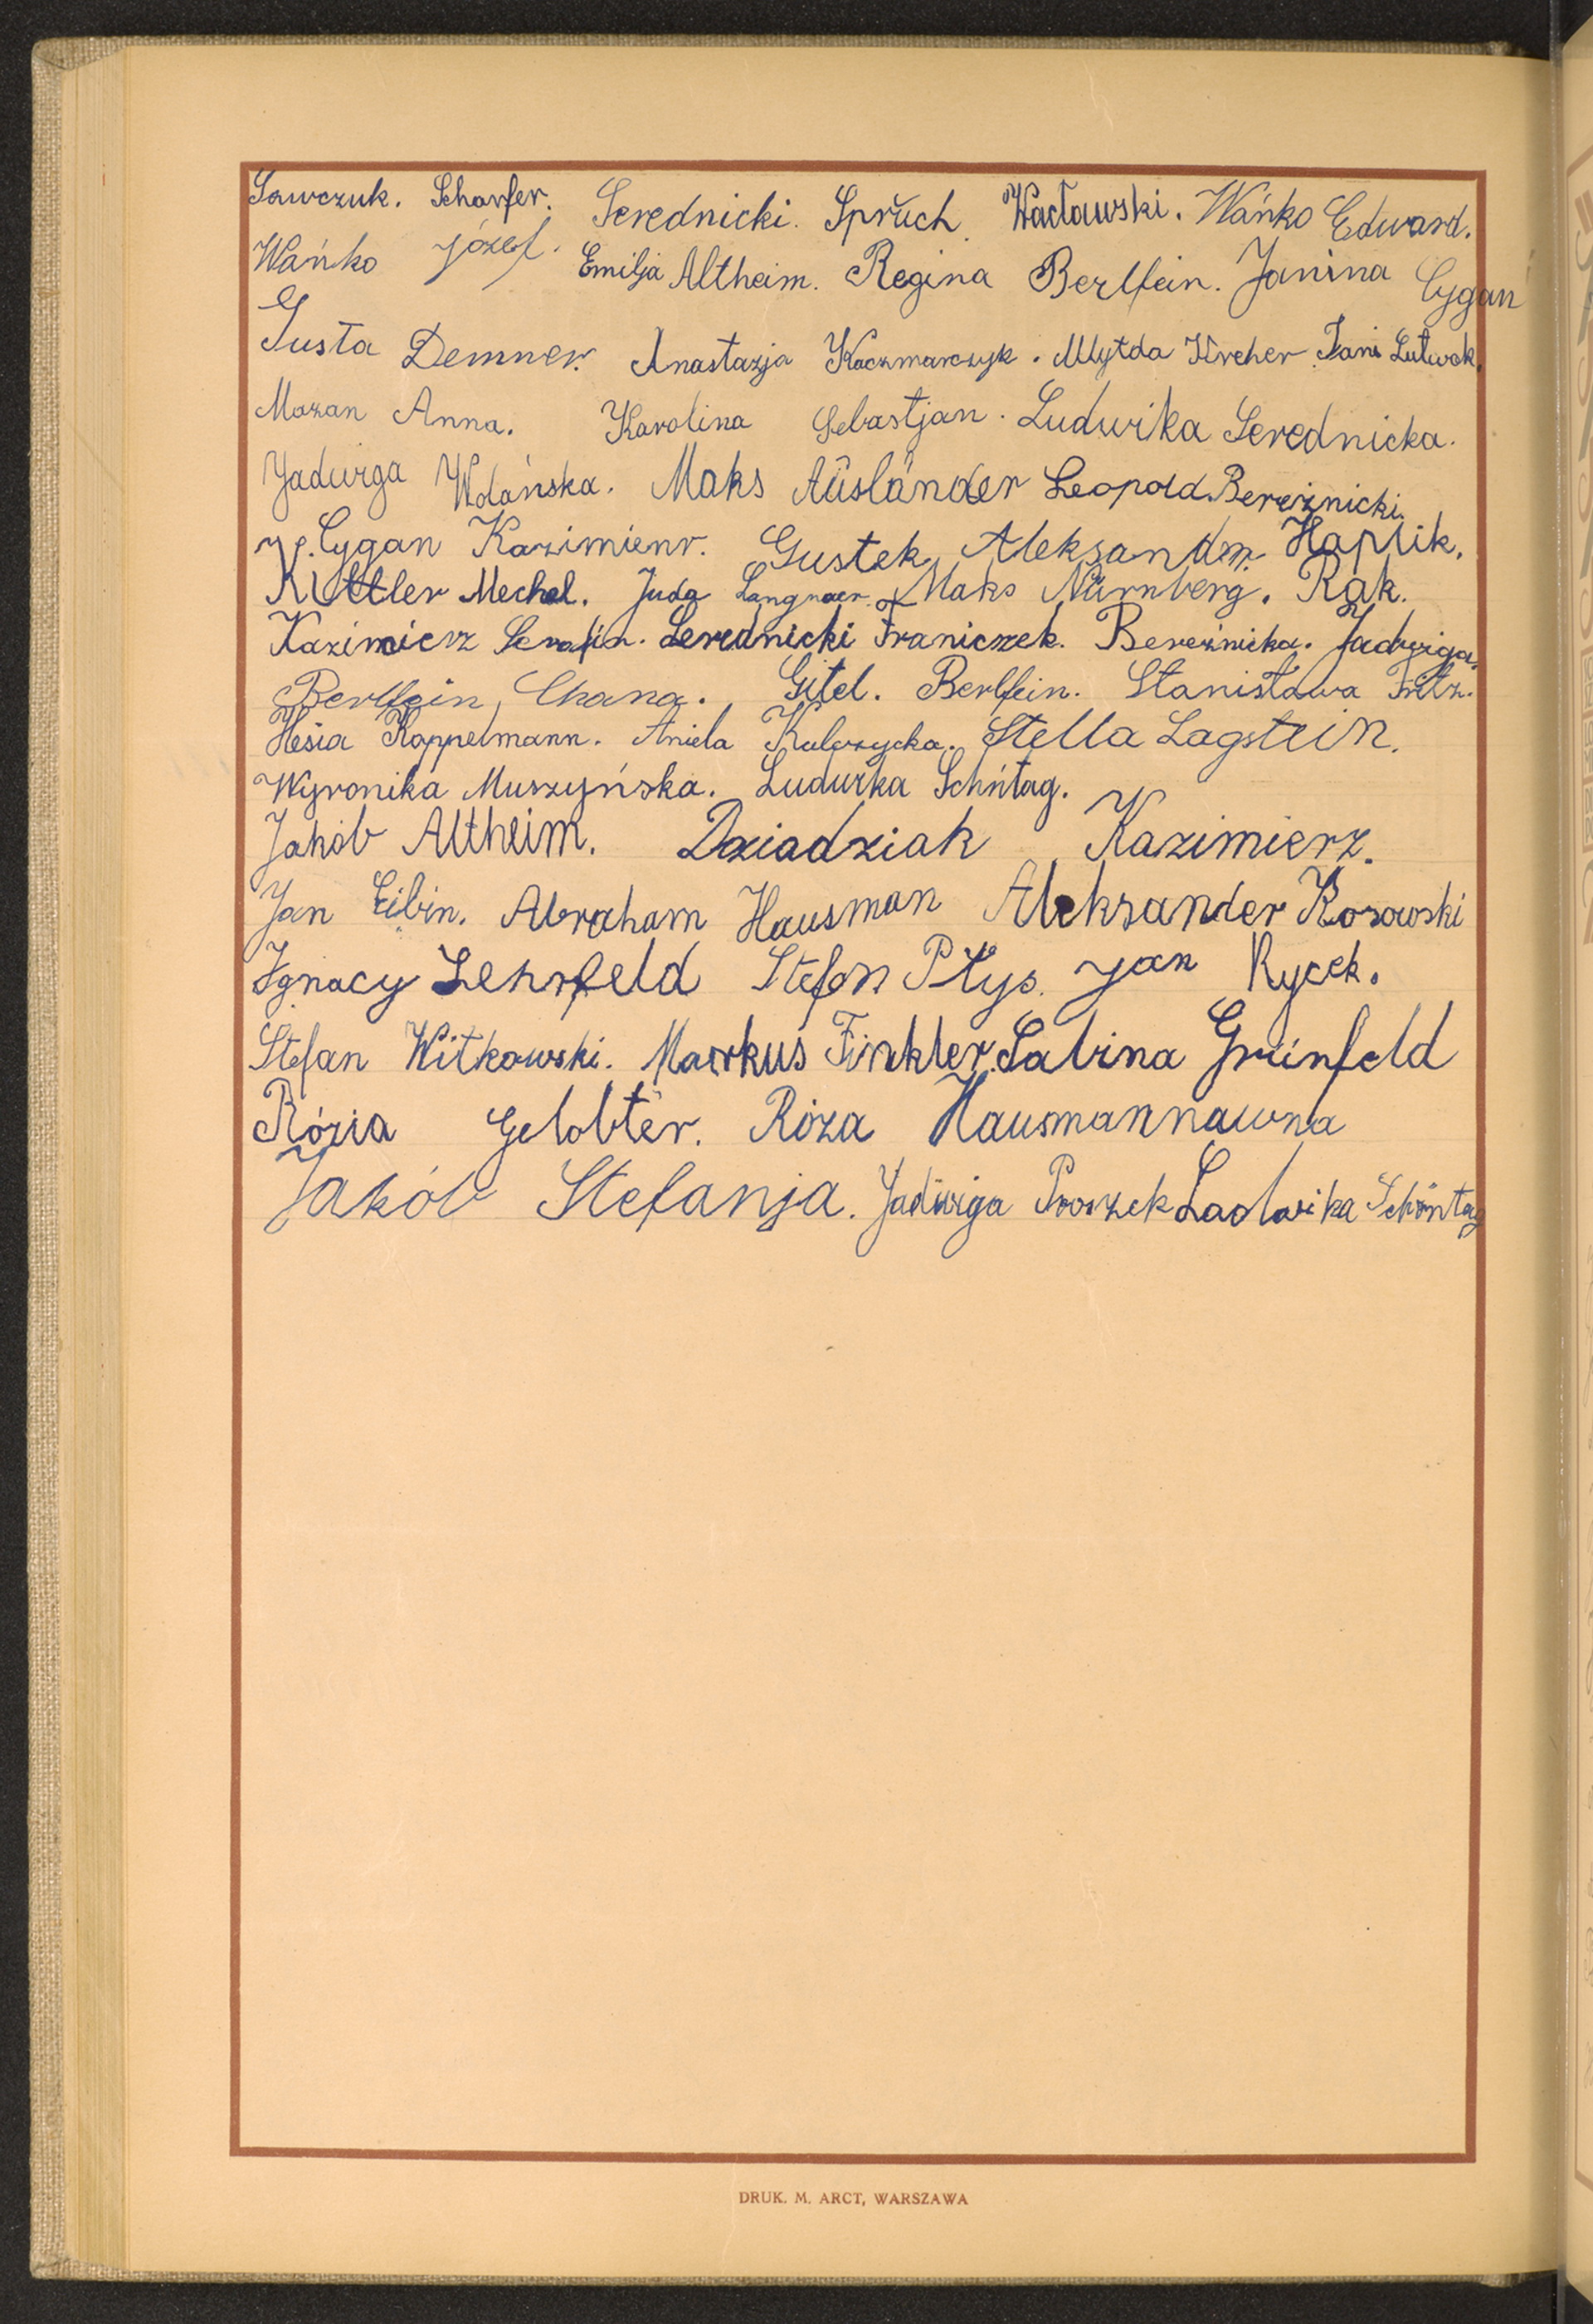 Sawczuk. Scharfer. Serednicki. Sprŭch. Wacławski. Wańko Edward.
Wańko Józef. Emilja Altheim. Regina Berlfein. Janina Cygan
Gusta Demner. Anastazja Kaczmarczyk. Kreher Lutwak.
Mazan Anna. Karolina Sebastjan. Ludwika Serednicka.
Jadwiga Wolańska. Maks Aŭsländer Leopold Bereżnicki.
Cygan Kazimierz. Gustek Aleksander. Haplik.
Kittler Mechel. Juda Langnaer. Maks Nürnberg. Rak.
Kazimierz Serafin. Serednicki Franiczek. Bereżnicka. Jadwiga.
Berlfein, Chana. Gitel. Berlfein. Stanisława Fritz.
Hesia Kappelmann. Aniela Kulczycka. Stella Lagstein.
Wyronika Muszyńska. Ludwika Schntag.
Jakób Altheim. Dziadziak Kazimierz.
Jan Eibin. Abraham Hausman Aleksander Kosowski
Ignacy Lehrfeld Stefan Ptyś. Jan Rycek.
Stefan Witkowski. Markus Finkler. Sabina Grünfeld
Rózia Gelobter. Róza Hausmannawna
Jakób Stefanja. Jadwiga Proszek Ludwika Schöntag
DRUK. M. ARCT, WARSZAWA